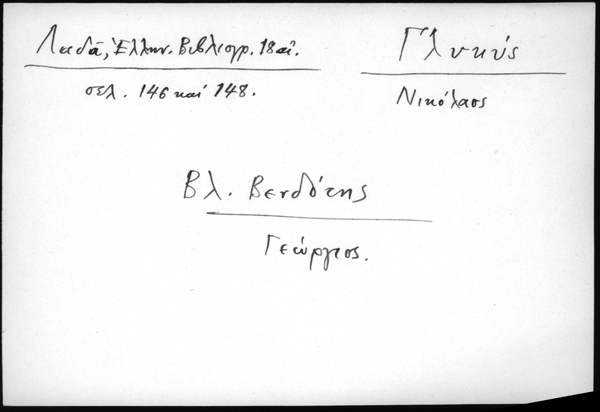 Λαδά, Ἑλλην. Βιβλιογρ. 18 αἰ.
σελ. 146 καί 148.
Γλυκύς
Νικόλαος
Βλ. Βενδότης
Γεώργιος.